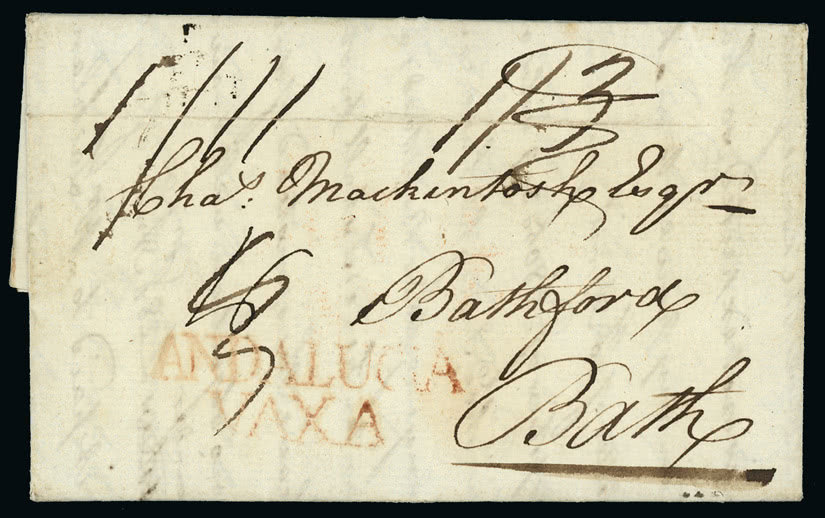 1/11 1/3
Chas. Mackintosh Esqr
Bathford
ANDALUCIA
VAXA
Bath